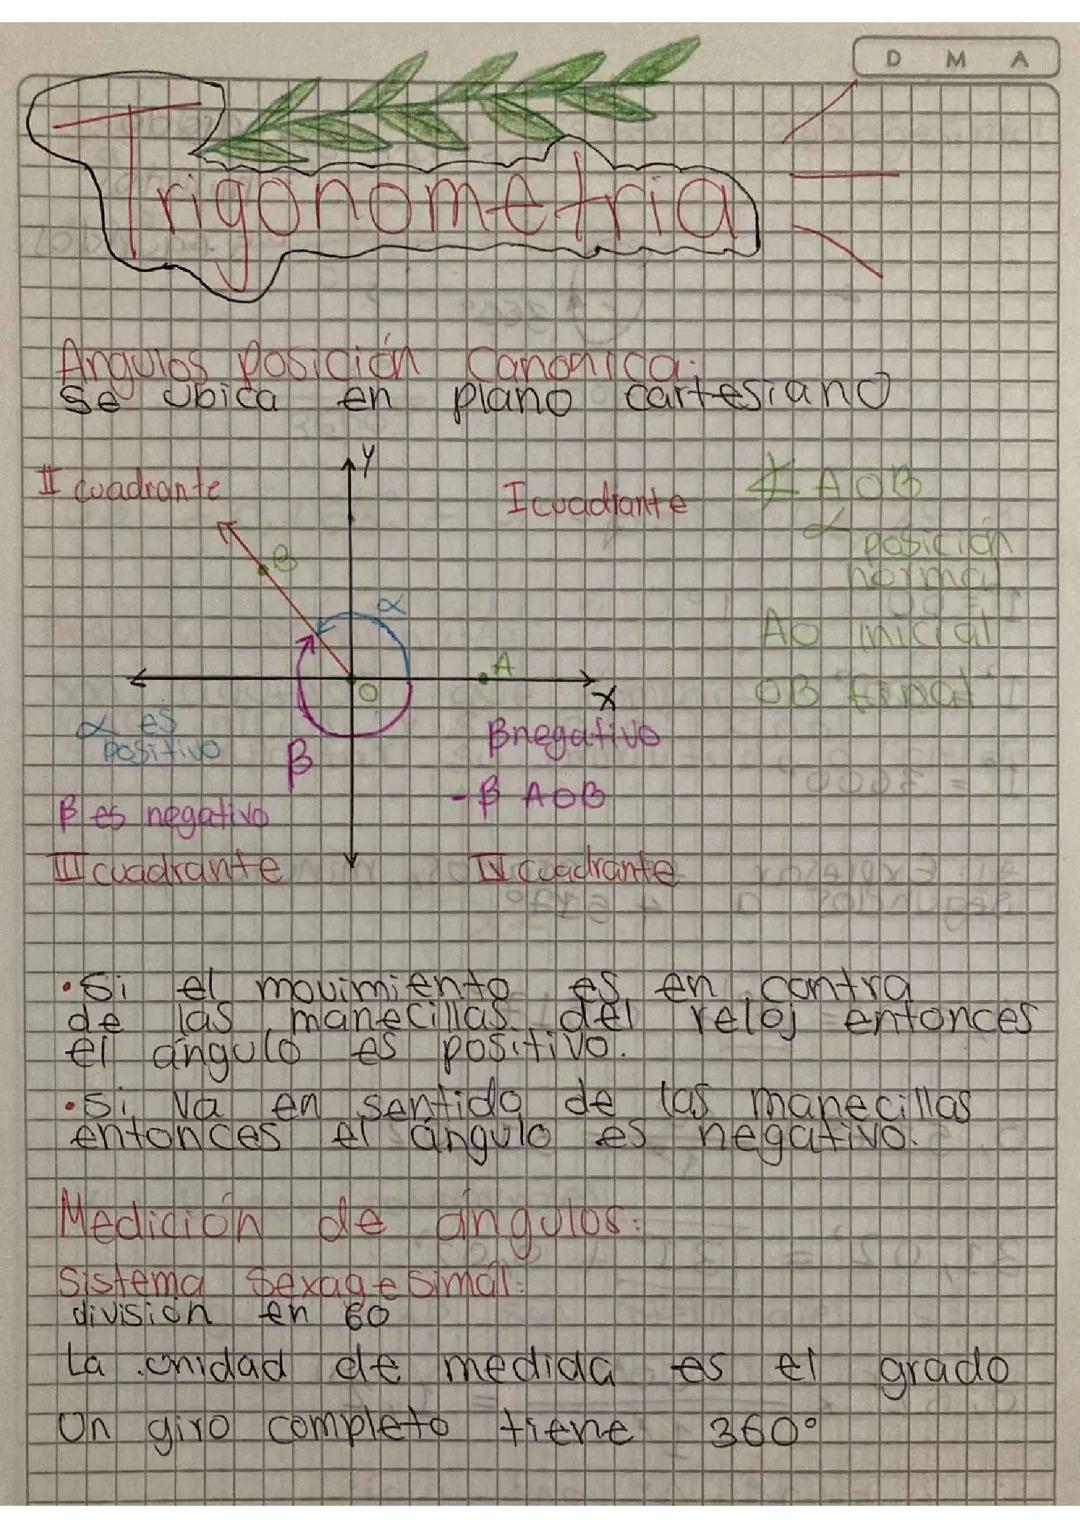 D M A
Trigonometria
Angulos posición Canonica:
se ubica en plano cartesiano
II cuadrante
Y
I cuadrante
∡ AOB
α posición
normal
B
α
AO inicial
A
O
X
OB Final
α es
positivo
β
β negativo
-β AOB
β es negativo
III cuadrante
IV cuadrante
• Si el movimiento es en contra
de las manecillas del reloj entonces
el ángulo es positivo.
• Si va en sentido de las manecillas
entonces el ángulo es negativo.
Medición de ángulos:
Sistema Sexagesimal:
división en 60
La unidad de medida es el grado
Un giro completo tiene 360°